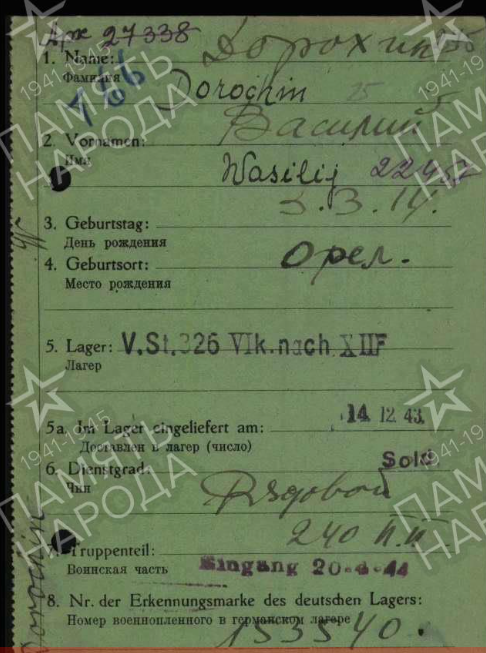 Арх 27338
Дорохин
1. Name:
Фамилия
Dorochin
Василий
2. Vornamen:
Имя
Wasilij
3.3.14.
3. Geburtstag:
День рождения
4. Geburtsort: Орел.
Место рождения
5. Lager: V.St.326 VIk.nach XIIF
Лагер
5a. Im Lager eingeliefert am: 14.12.43.
Доставлен в лагер (число)
Sold
6. Dienstgrad:
Чин
Рядовой
240
7. Truppenteil:
Воинская часть Eingang 20-3-44
8. Nr. der Erkennungsmarke des deutschen Lagers:
Номер военнопленного в германском лагере
153540.
Dorochin
ПАМЯТЬ НАРОДА
1941-1945